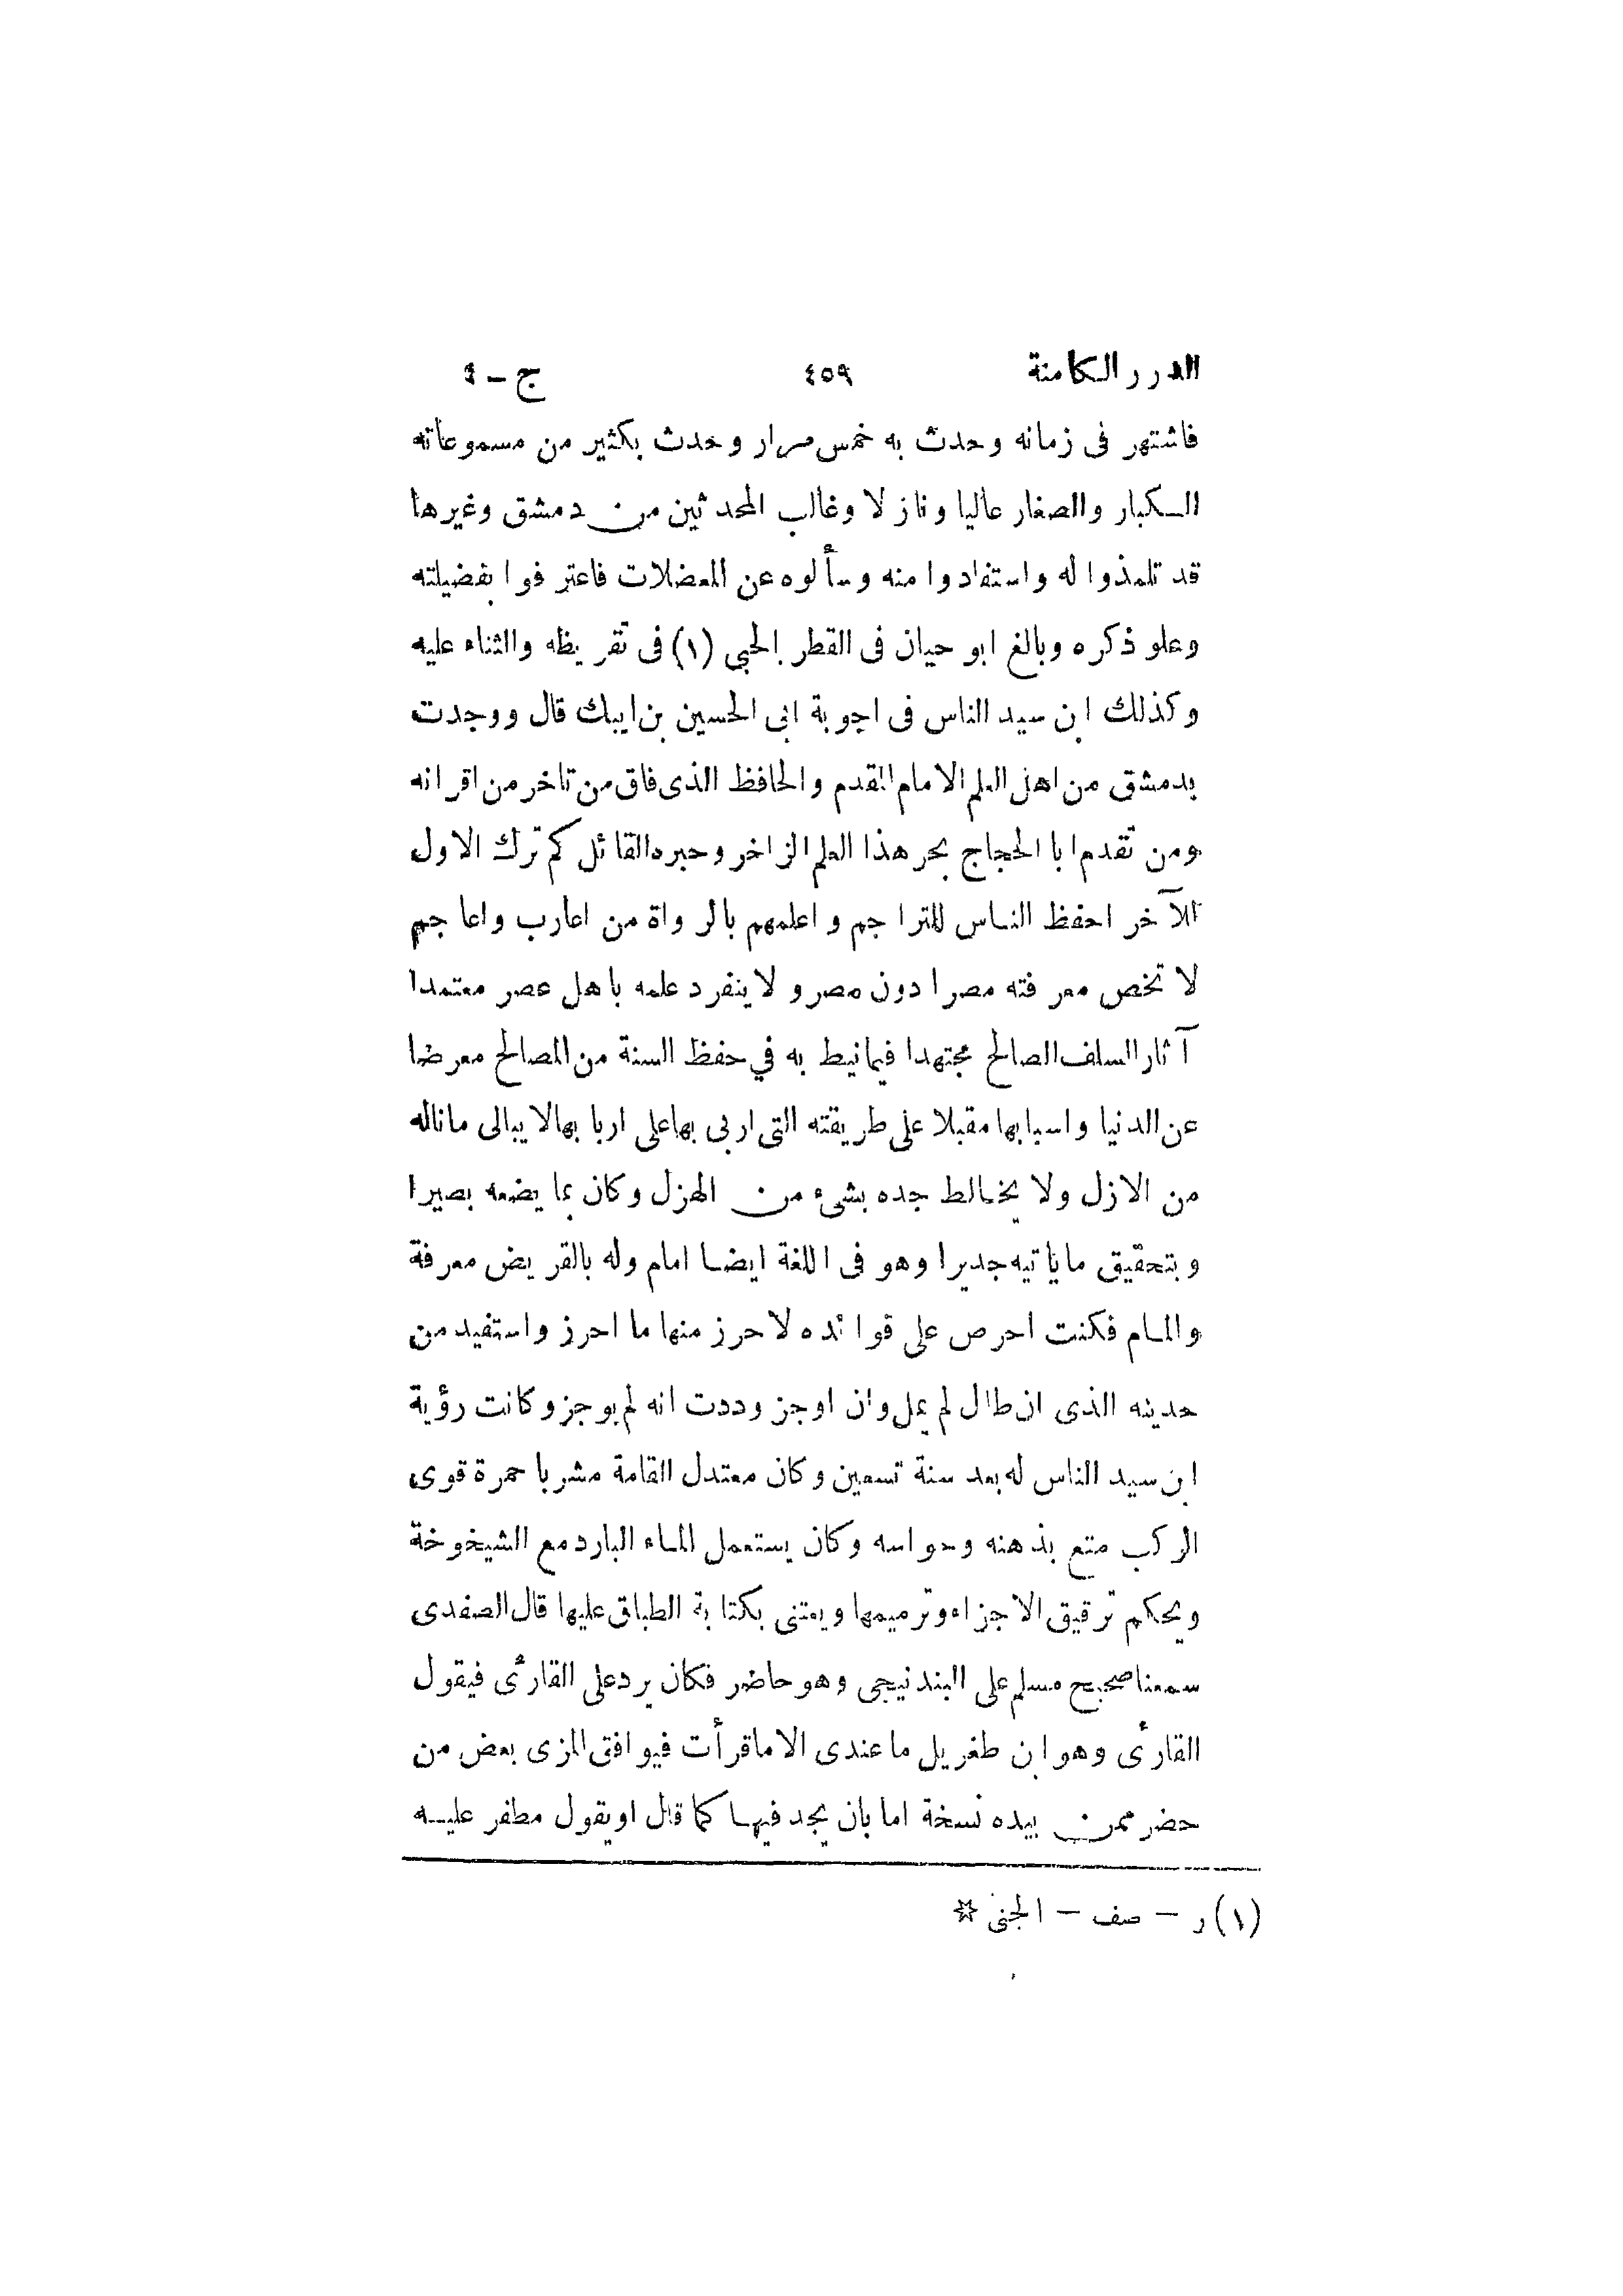 الدرر الكامنة ٤٥٩ ج - ٤
فاشتهر فى زمانه وحدث به خمس مرار وحدث بكثير من مسموعاته
الكبار والصغار عاليا ونازلا وغالب المحدثين من دمشق وغيرها
قد تلمذوا له واستفادوا منه وسألوه عن المعضلات فاعترفوا بفضيلته
وعلو ذكره وبالغ ابو حيان فى القطر الحبي (١) فى تقريظه والثناء عليه
وكذلك ابن سيد الناس فى اجوبة ابى الحسين بن ايبك قال ووجدت
بدمشق من اهل العلم الامام المقدم والحافظ الذى فاق من تاخر من اقرانه
ومن تقدم ابا الحجاج بحر هذا العلم الزاخر وحبره القائل كم ترك الاول
للآخر احفظ الناس للتراجم واعلمهم بالرواة من اعارب واعاجم
لا تخص معرفته مصرا دون مصر ولا ينفرد علمه باهل عصر معتمدا
آثار السلف الصالح مجتهدا فيما نيط به في حفظ السنة من المصالح معرضا
عن الدنيا واسبابها مقبلا على طريقته التى اربى بها على اربابها لا يبالى ما ناله
من الازل ولا يخالط جده بشىء من الهزل وكان بما يضعه بصيرا
وبتحقيق ما ياتيه جديرا وهو فى اللغة ايضا امام وله بالقريض معرفة
والمام فكنت احرص على فوائده لاحرز منها ما احرز واستفيد من
حديثه الذى ان طال لم يمل وان اوجز وددت انه لم يوجز وكانت رؤية
ابن سيد الناس له بعد سنة تسعين وكان معتدل القامة مشربا حمرة قوى
الركب متع بذهنه وحواسه وكان يستعمل الماء البارد مع الشيخوخة
ويحكم ترقيق الاجزاء وترميمها ويعتنى بكتابة الطباق عليها قال الصفدى
سمعنا صحيح مسلم على البندنيجى وهو حاضر فكان يرد على القارئ فيقول
القارئ وهو ابن طغريل ما عندى الا ما قرأت فيوافق المزى بعض من
حضر ممن بيده نسخة اما بان يجد فيها كما قال او يقول مظفر عليه
(١) ر - صف - الجنى *